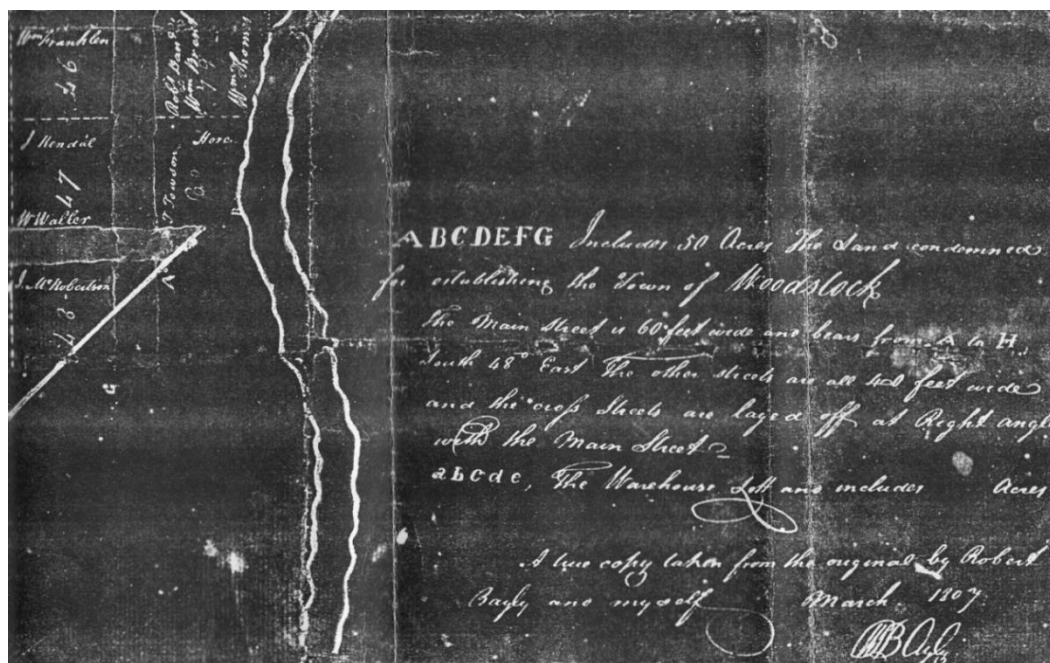 Wm Franklen
46
Robt Band
Wm Brent
Wm Thomas
J Kendal
47
T Towson
Hore
W Waller
J. McRobertson
48
A
B
G
ABCDEFG Includes 50 Acres The Land condemned
for establishing the Town of Woodstock
The Main Street is 60 feet wide and bears from A to H
South 48° East The other streets are all 40 feet wide
and the cross Streets are layed off at Right angl
with the Main Street
abcde, The Warehouse Lott and includes Acres
A true copy taken from the original by Robert
Bayly and myself March 1807